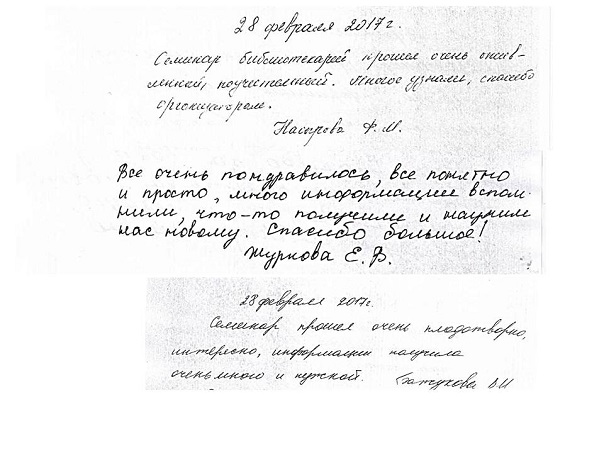 28 февраля 2017г.
Семинар библиотекарей прошел очень ожив-
ленный, поучительный. Многое узнали, спасибо
организаторам.
Насырова Ф.М.
Все очень пондравилось, все понятно
и просто, много информации вспом-
нили, что-то получили и научили
нас новому. Спасибо большое!
Журкова Е.В.
28 февраля 2017г.
Семинар прошел очень плодотворно,
интересно, информации получила
очень много и нужной.